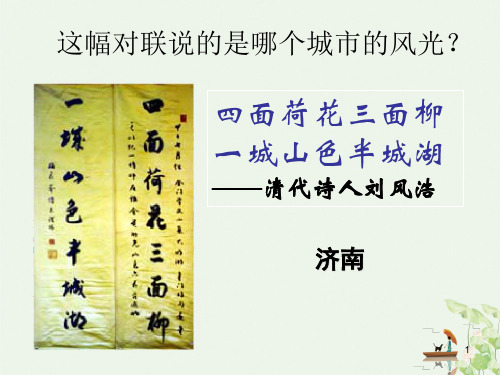 这幅对联说的是哪个城市的风光？
四面荷花三面柳
一城山色半城湖
四面荷花三面柳
一城山色半城湖
——清代诗人刘凤浩
济南
1